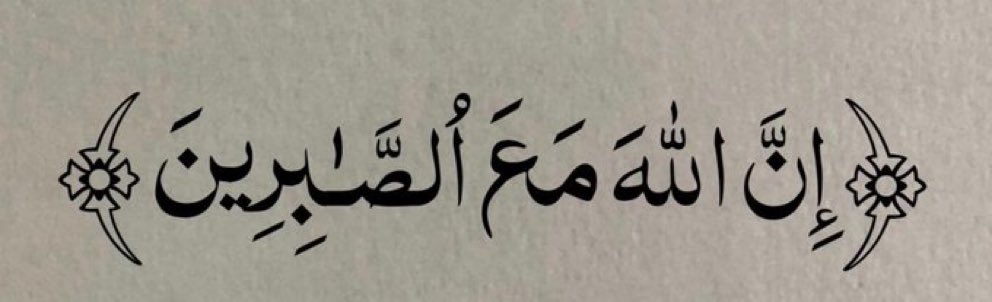 ﴿إِنَّ اللَّهَ مَعَ ٱلصَّـٰبِرِينَ﴾